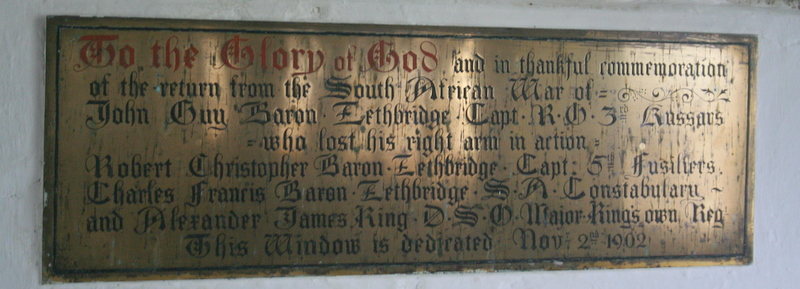 To the Glory of God and in thankful commemoration
of the return from the South African War of
John Guy Baron Lethbridge Capt. R.O. 3rd Hussars
who lost his right arm in action
Robert Christopher Baron Lethbridge Capt. 5th Fusiliers.
Charles Francis Baron Lethbridge S.A. Constabulary
and Alexander James King D.S.O. Major King's own Reg
This Window is dedicated Nov. 2nd 1902